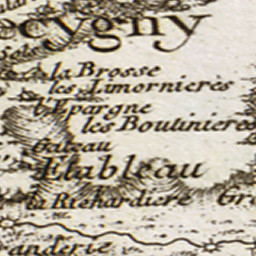 ecygny
la Brosse
les Limornierès
l'Epargne
les Boutinieres
Gateau
Etableau
la Richardiere Gr
anderie